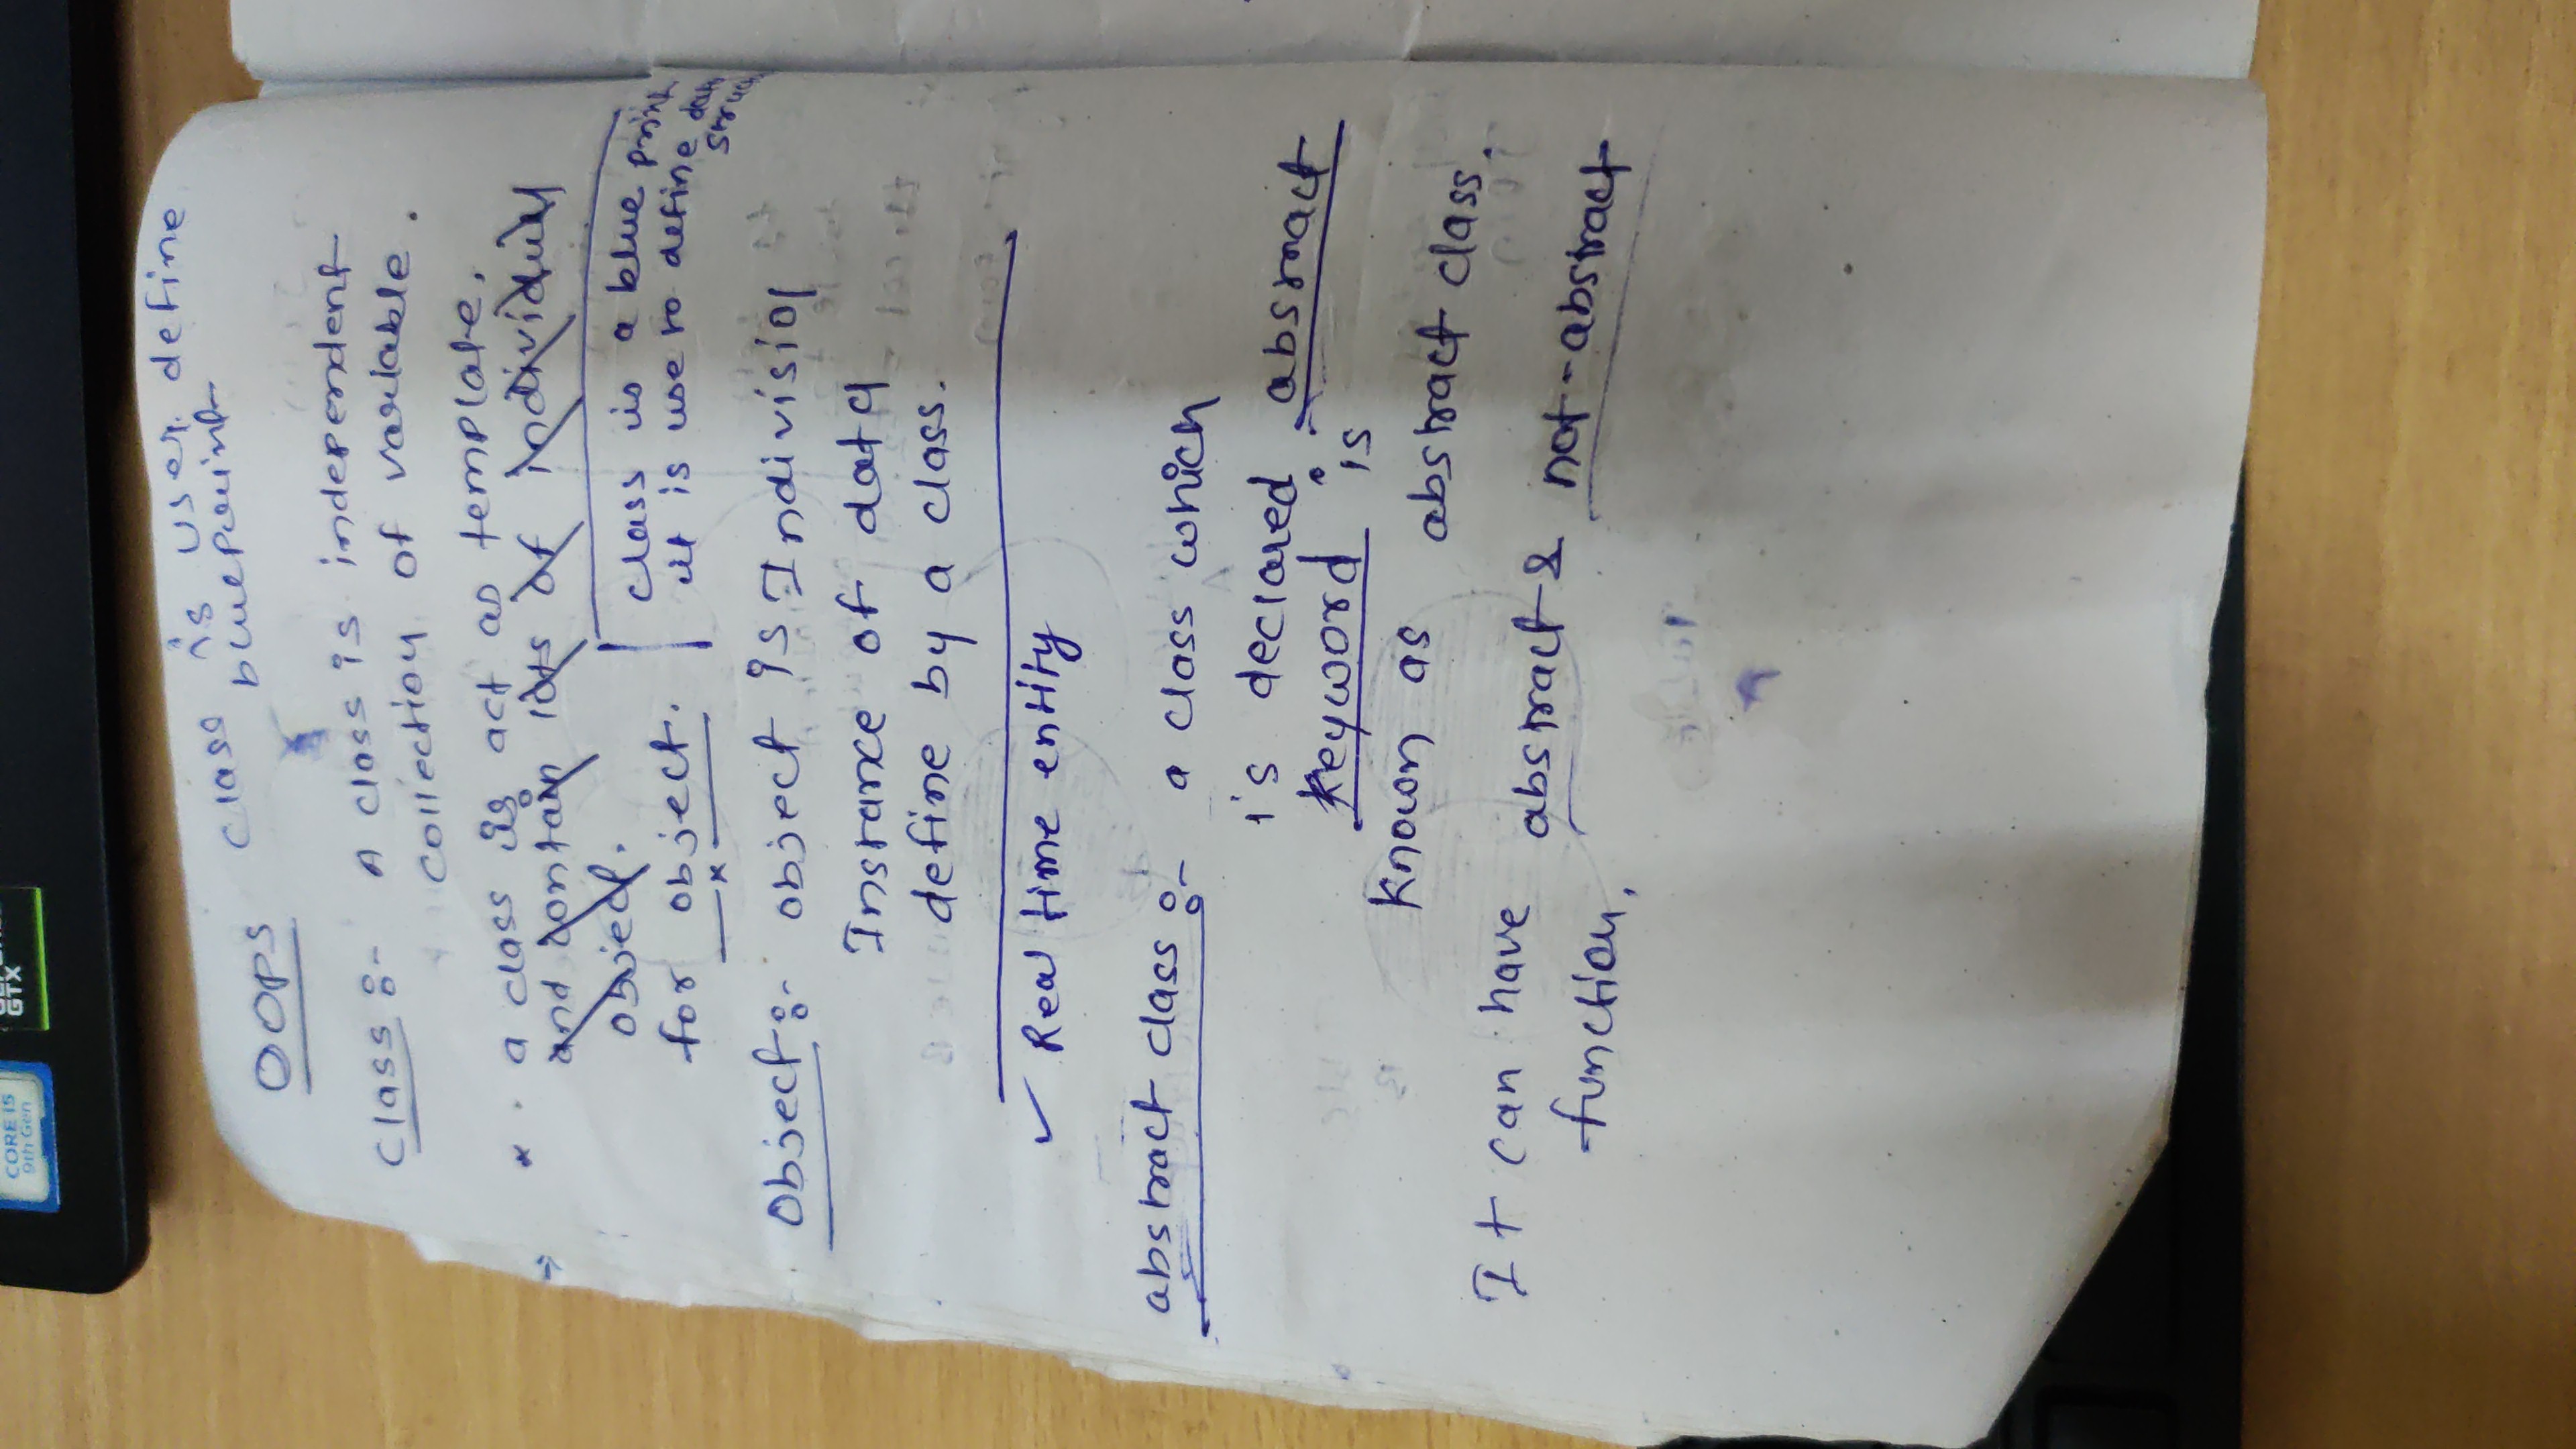 CORE i5
9th Gen
GTX
class is user define
blueprint
OOPS
class :- A class is independent
collection of variable.
* . a class is act as template.
→ and contain lots of individual
object.
for object.
class is a blue print
it is use to define data
struc
Object :- object is Indivisiol
Instance of data
define by a class.
✓ Real time entity
abstract class :- a class which
is declared abstract
keyword is
known as abstract class.
It can have abstract & not-abstract
function.